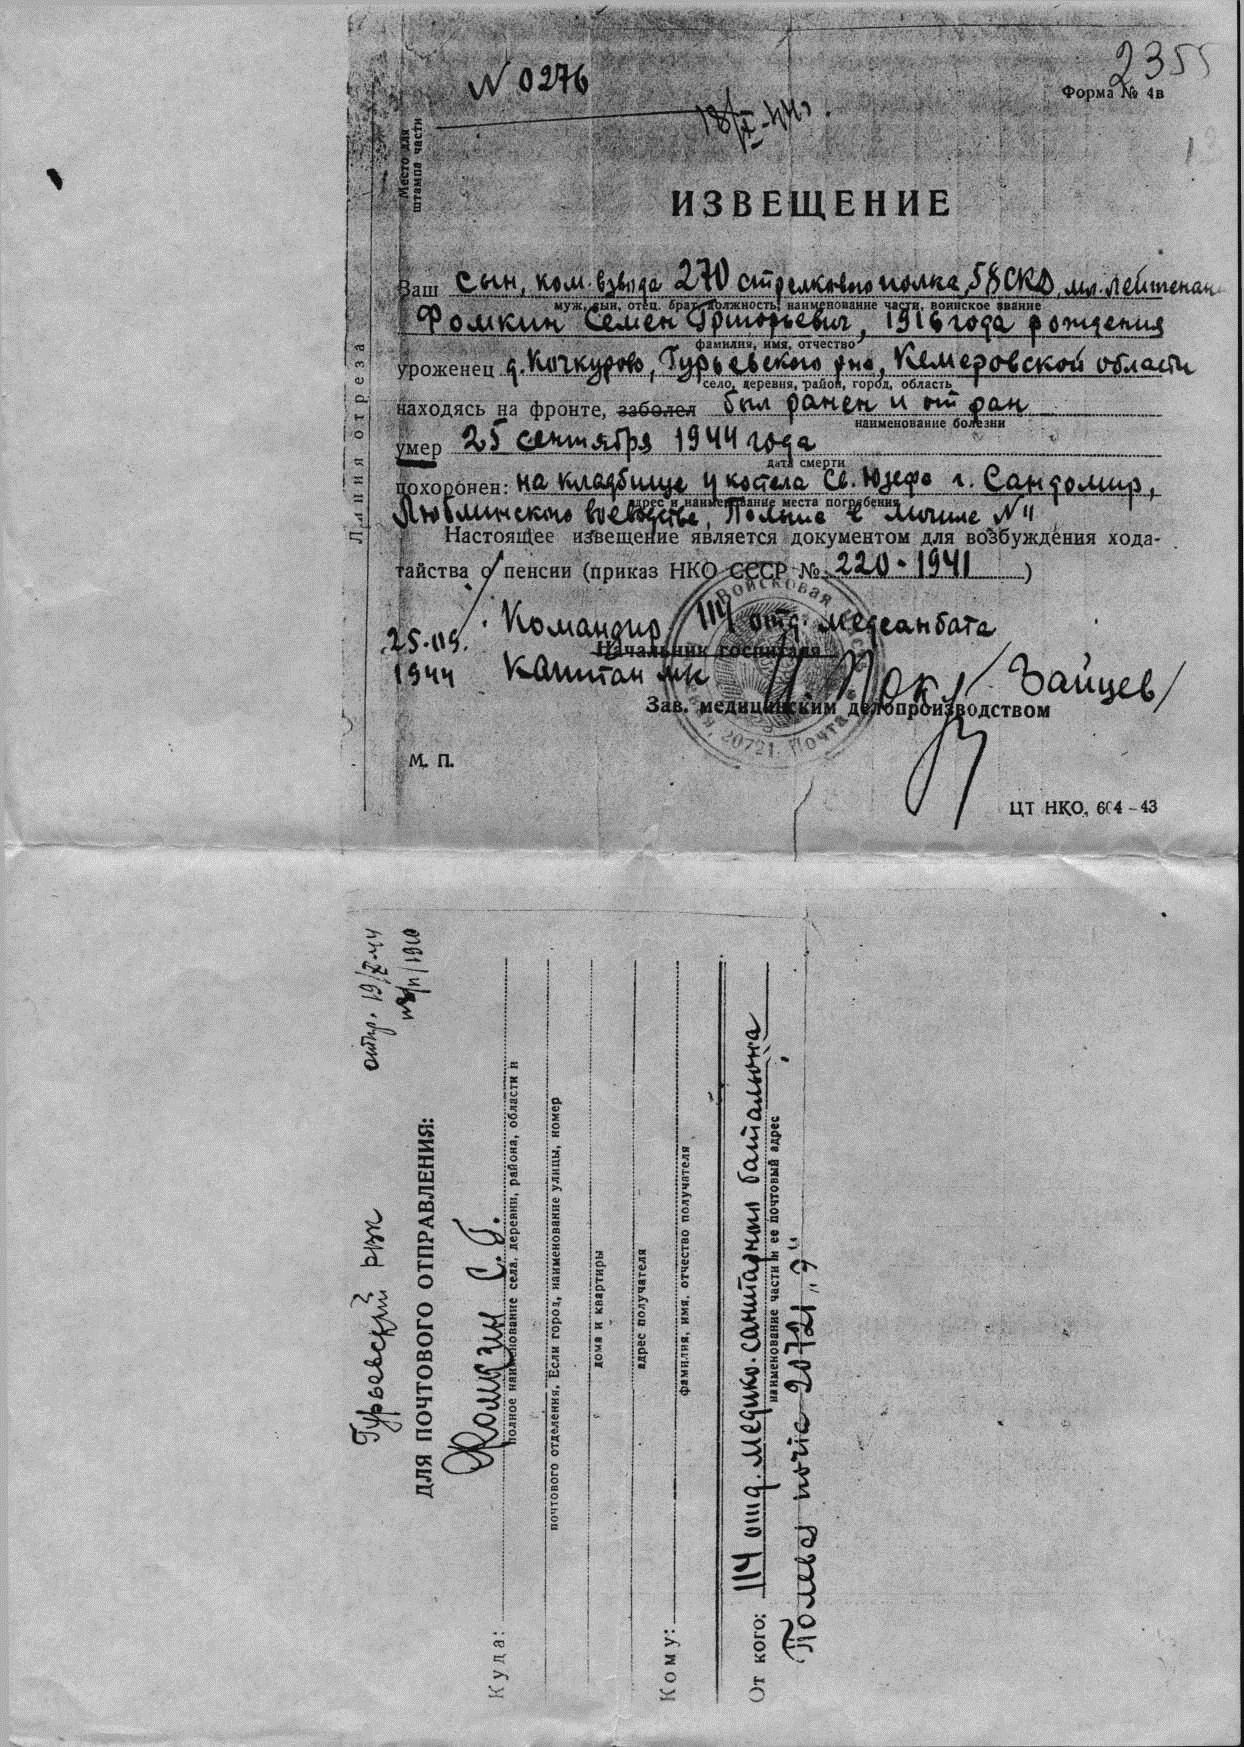 2355
N 0276
Форма № 4в
18/X-44г.
Место для
штампа части
ИЗВЕЩЕНИЕ
Ваш сын, ком. взвода 270 стрелкового полка, 58 СКД, мл. лейтенант
муж, сын, отец, брат, должность, наименование части, воинское звание
Фомкин Семен Григорьевич, 1916 года рождения
фамилия, имя, отчество
уроженец д. Кочкурово, Гурьевского р-на, Кемеровской области
село, деревня, район, город, область
находясь на фронте, заболел был ранен и от ран
наименование болезни
умер 25 сентября 1944 года
дата смерти
похоронен: на кладбище у костела Св. Юзефа г. Сандомир,
адрес и наименование места погребения
Люблинского воеводства, Польша в могиле N 11
Настоящее извещение является документом для возбуждения хода-
тайства о пенсии (приказ НКО СССР № 220-1941)
Командир 114 отд. медсанбата
25.09.
Начальник госпиталя
1944 капитан м/с /Зайцев/
Зав. медицинским делопроизводством
Войсковая часть, 20721. Почта
М. П.
ЦТ НКО, 604-43
Линия отреза
отпр. 19/X-44
Гурьевский РВК
ДЛЯ ПОЧТОВОГО ОТПРАВЛЕНИЯ:
Куда: Фомкин С. Г.
полное наименование села, деревни, района, области и
почтового отделения. Если город, наименование улицы, номер
дома и квартиры
адрес получателя
Кому:
фамилия, имя, отчество получателя
От кого: 114 отд. медико-санитарный батальона
наименование части и ее почтовый адрес
Полевая почта 20721 „9"